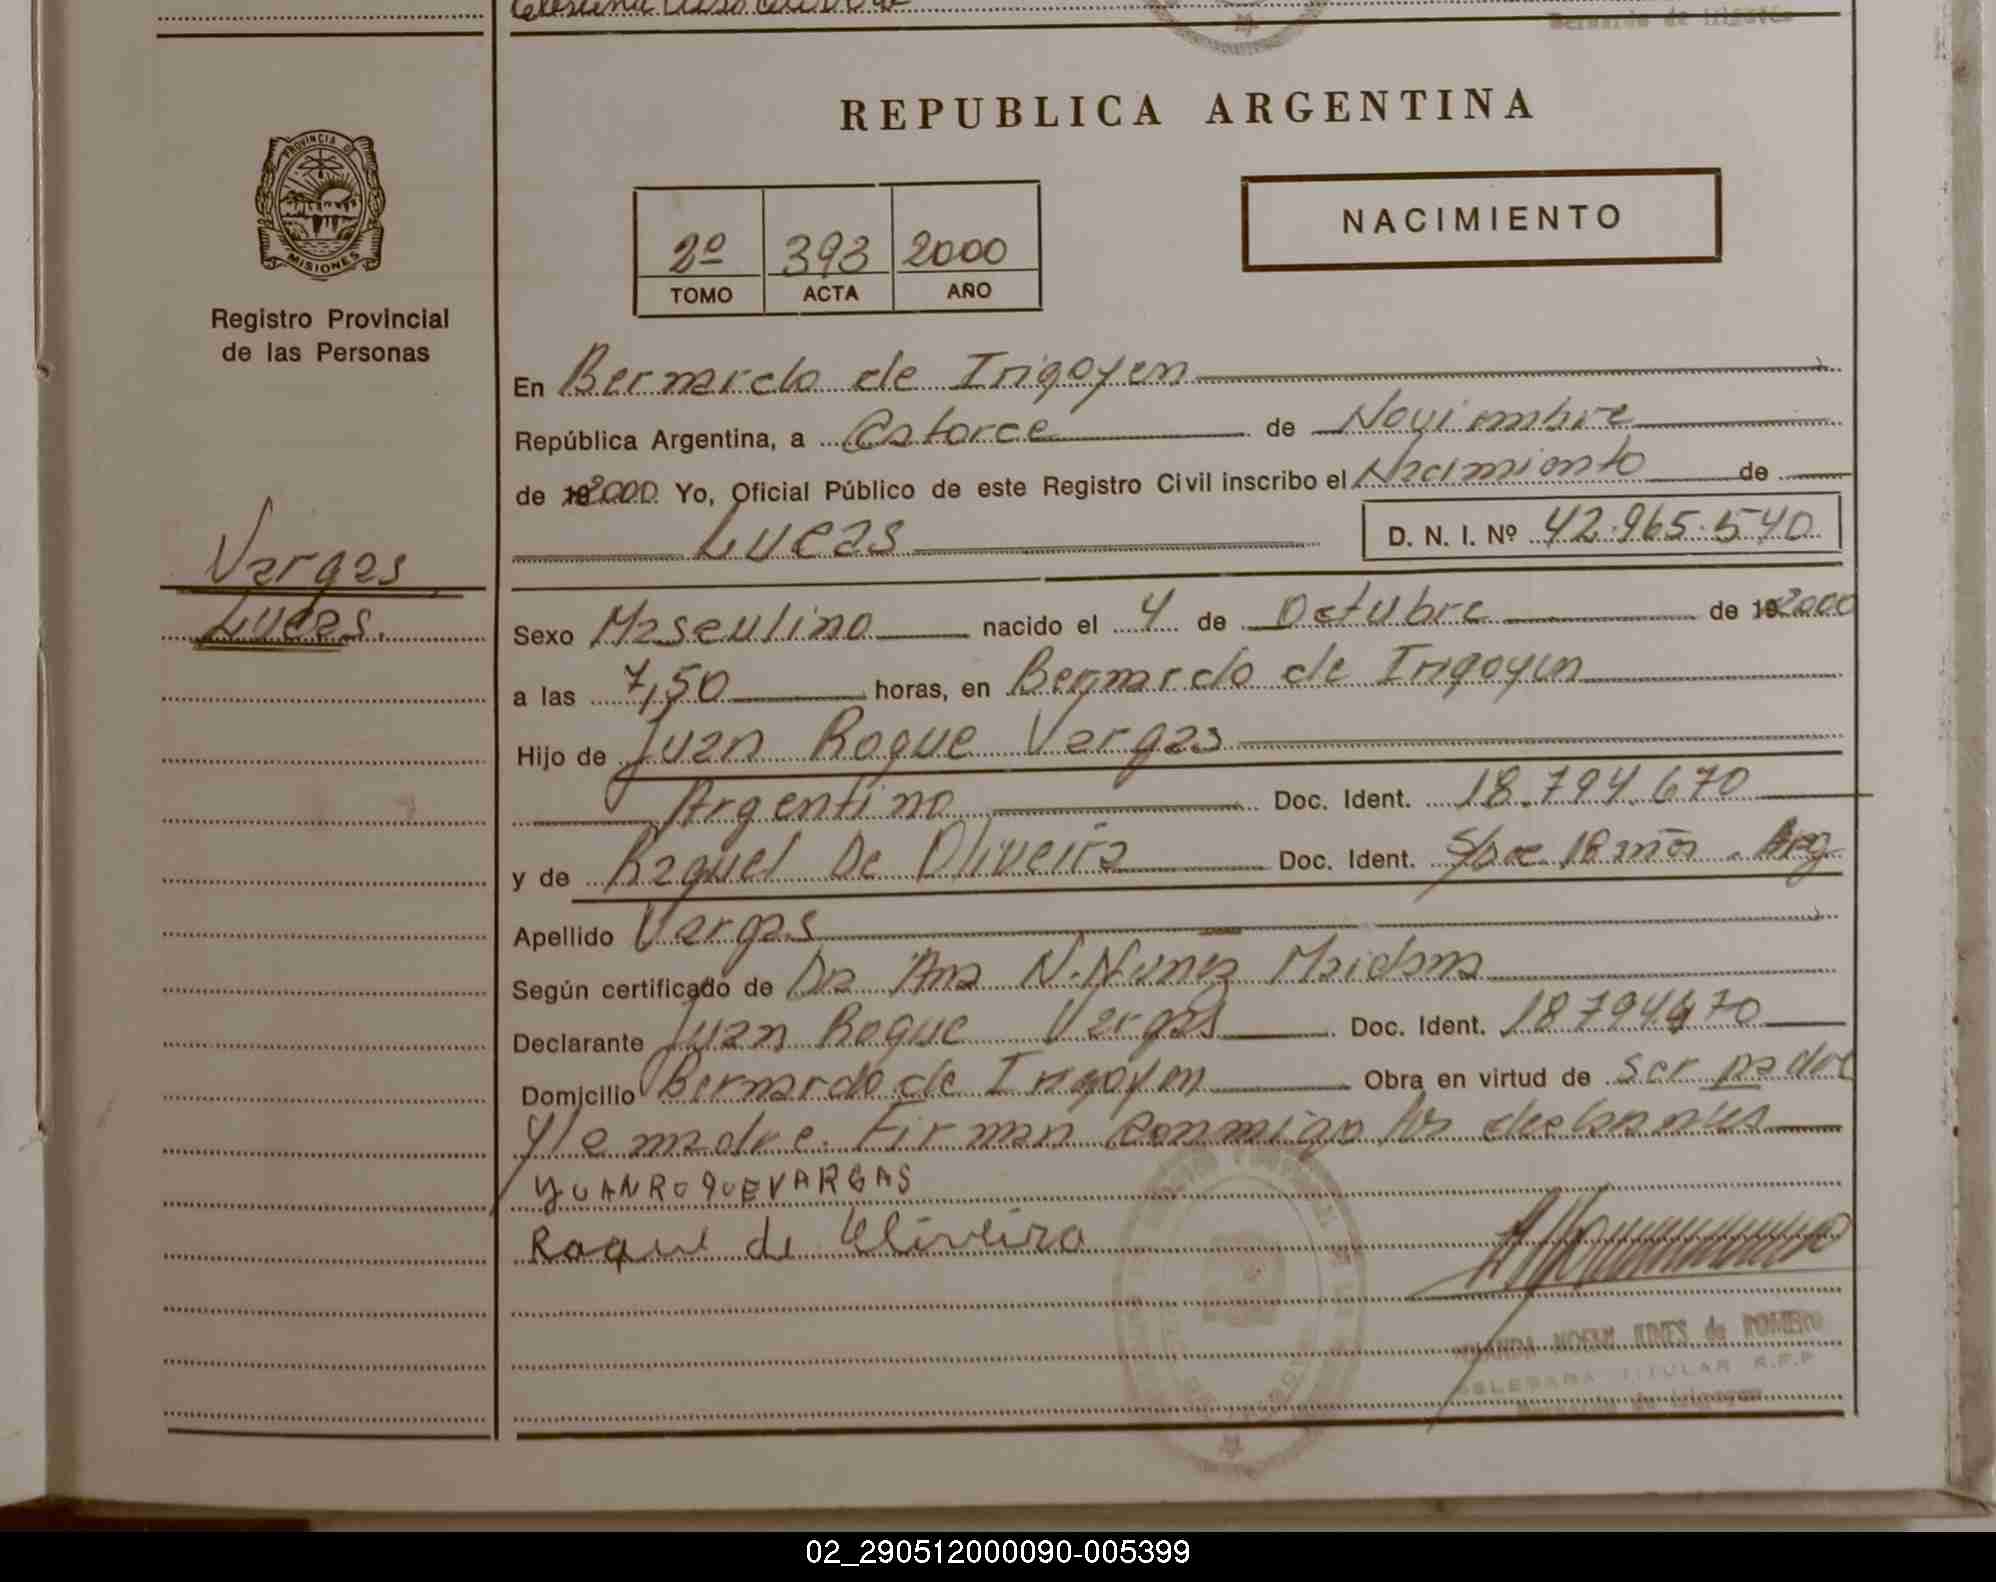 REPUBLICA ARGENTINA
PROVINCIA DE
MISIONES
Registro Provincial
de las Personas
NACIMIENTO
2º 393 2000
TOMO ACTA AÑO
En Bernardo de Irigoyen
República Argentina, a Catorce de Noviembre
de 19 2000 Yo, Oficial Público de este Registro Civil inscribo el Nacimiento de
Lucas D. N. I. Nº 42.965.540
Vargas
Lucas.
Sexo Masculino nacido el 4 de Octubre de 19 2000
a las 7,50 horas, en Bernardo de Irigoyen
Hijo de Juan Roque Vargas
Argentino Doc. Ident. 18.794.670
y de Raquel De Oliveira Doc. Ident. 18 Arg
Apellido Vargas
Según certificado de Dra Ana N. Nunez Maidana
Declarante Juan Roque Vargas Doc. Ident. 18794670
Domicilio Bernardo de Irigoyen Obra en virtud de ser padre
y la madre. Firman conmigo los declarantes
JUAN ROQUE VARGAS
Raquel de Oliveira
NOEMI de ROMERO
DELEGADA TITULAR R.P.P
Bernardo de Irigoyen
02_290512000090-005399